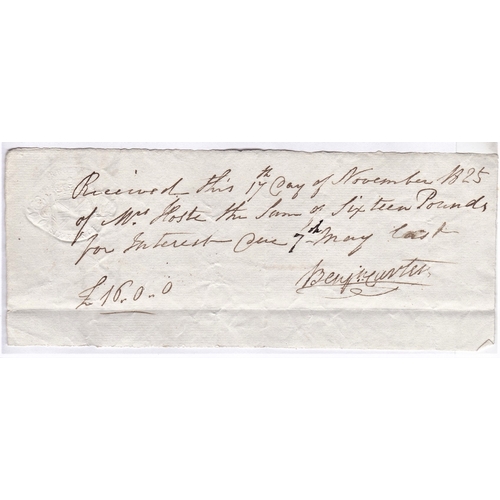 Received this 17th Day of November 1825
of Mrs Hoste the Sum of Sixteen Pounds
for Interest due 7th May last
Benjn Curtis
£16.0.0